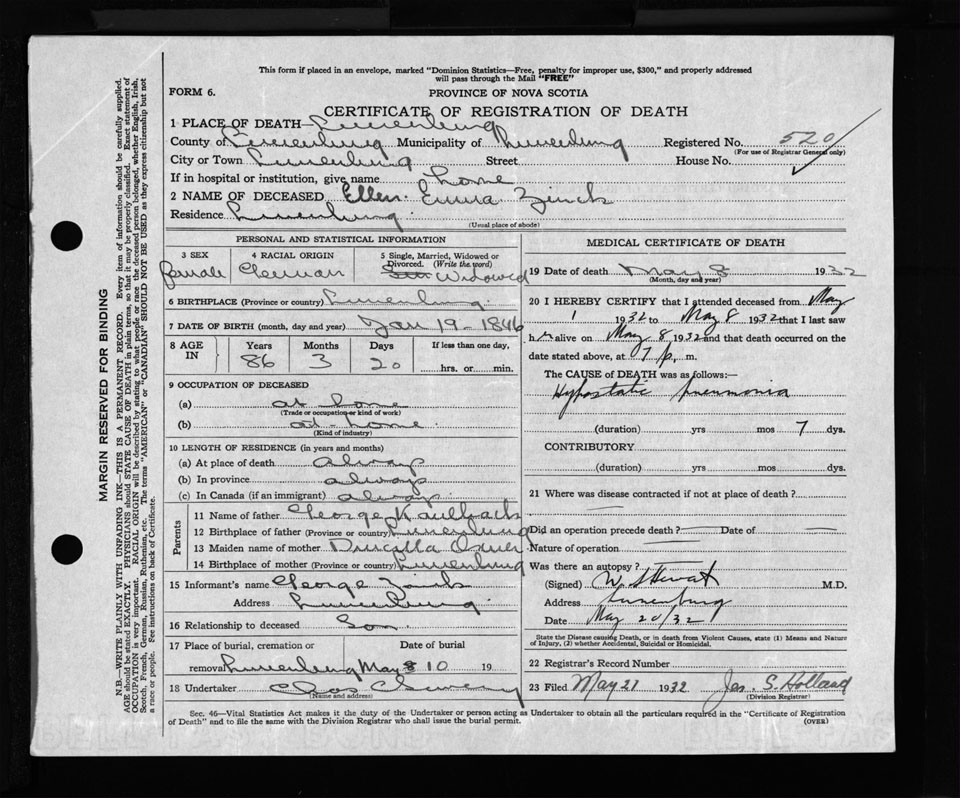 This form if placed in an envelope, marked "Dominion Statistics—Free, penalty for improper use, $300," and properly addressed
will pass through the Mail "FREE"
FORM 6.
PROVINCE OF NOVA SCOTIA
CERTIFICATE OF REGISTRATION OF DEATH
1 PLACE OF DEATH— Lunenburg
County of Lunenburg Municipality of Lunenburg Registered No. 520
(For use of Registrar General only)
City or Town Lunenburg Street House No.
If in hospital or institution, give name home
2 NAME OF DECEASED Ellen Emma Zinck
Residence Lunenburg
(Usual place of abode)
PERSONAL AND STATISTICAL INFORMATION
3 SEX 4 RACIAL ORIGIN 5 Single, Married, Widowed or
Divorced. (Write the word)
Female German Widowed
6 BIRTHPLACE (Province or country) Lunenburg
7 DATE OF BIRTH (month, day and year) Jan 19 - 1846
8 AGE IN Years Months Days If less than one day,
86 3 20 hrs. or min.
9 OCCUPATION OF DECEASED
(a) at home
(Trade or occupation or kind of work)
(b) at home
(Kind of industry)
10 LENGTH OF RESIDENCE (in years and months)
(a) At place of death always
(b) In province always
(c) In Canada (if an immigrant) always
Parents
11 Name of father George Kaulback
12 Birthplace of father (Province or country) Lunenburg
13 Maiden name of mother Drucilla
14 Birthplace of mother (Province or country) Lunenburg
15 Informant's name George Zinck
Address Lunenburg
16 Relationship to deceased Son
17 Place of burial, cremation or Date of burial
removal Lunenburg May 10 19
18 Undertaker Chas
(Name and address)
MEDICAL CERTIFICATE OF DEATH
19 Date of death May 8 1932
(Month, day and year)
20 I HEREBY CERTIFY that I attended deceased from May
1 1932 to May 8 1932 that I last saw
h r alive on May 8 1932 and that death occurred on the
date stated above, at 7 p. m.
The CAUSE of DEATH was as follows:—
Hypostatic pneumonia
(duration) yrs mos 7 dys.
CONTRIBUTORY
(duration) yrs mos dys.
21 Where was disease contracted if not at place of death?
Did an operation precede death? Date of
Nature of operation
Was there an autopsy?
(Signed) W. Stewart M.D.
Address Lunenburg
Date May 20/32
State the Disease causing Death, or in death from Violent Causes, state (1) Means and Nature
of Injury, (2) whether Accidental, Suicidal or Homicidal.
22 Registrar's Record Number
23 Filed May 21 1932 Jas. S. Holland
(Division Registrar)
Sec. 46—Vital Statistics Act makes it the duty of the Undertaker or person acting as Undertaker to obtain all the particulars required in the "Certificate of Registration
of Death" and to file the same with the Division Registrar who shall issue the burial permit. (OVER)
MARGIN RESERVED FOR BINDING
N.B.—WRITE PLAINLY WITH UNFADING INK—THIS IS A PERMANENT RECORD. Every item of information should be carefully supplied.
AGE should be stated EXACTLY. PHYSICIANS should STATE CAUSE OF DEATH in plain terms, so that it may be properly classified. Exact statement of
OCCUPATION is very important. RACIAL ORIGIN will be described by stating to what people or race the deceased person belonged, whether English, Irish,
Scotch, French, German, Russian, Ruthenian, etc. The terms "AMERICAN" or "CANADIAN" SHOULD NOT BE USED as they express citizenship but not
a race or people. See instructions on back of Certificate.